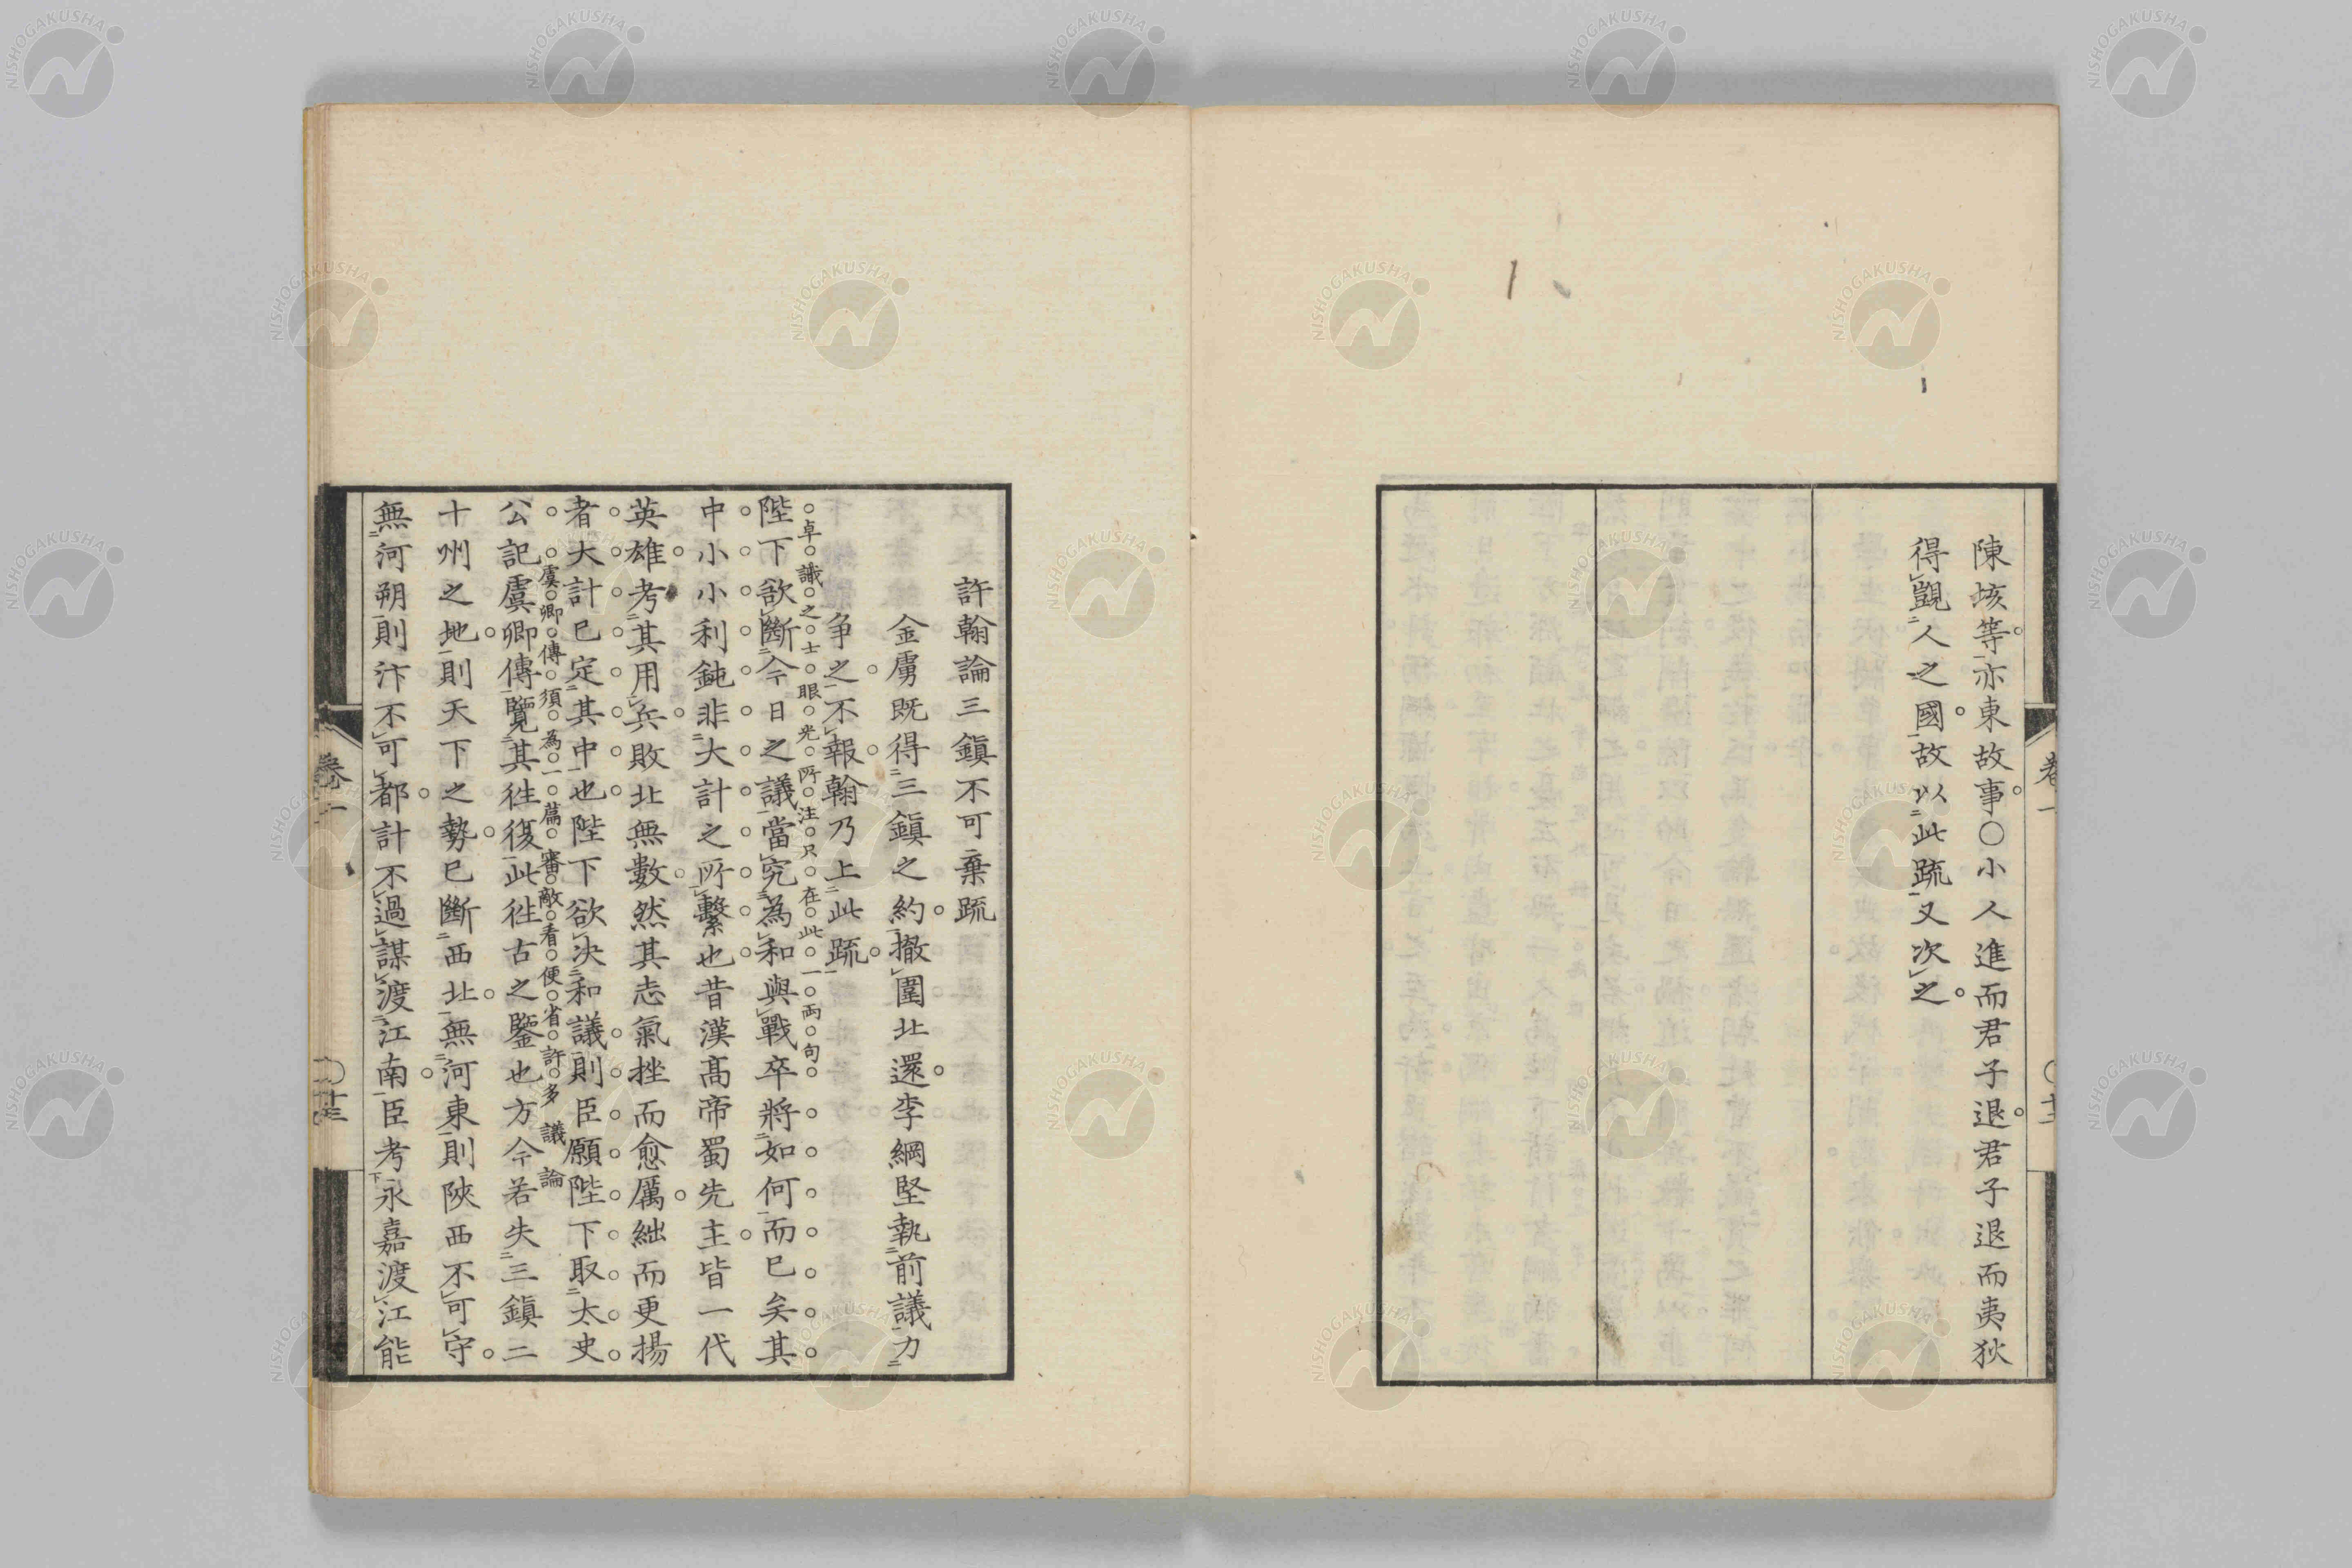 陳垓等亦東故事○小人進而君子退君子退而夷狄
得覬人之國故以此疏又次之
卷一
許翰論三鎮不可棄疏
金虜既得三鎮之約撤圍北還李綱堅執前議力
爭之不報翰乃上此疏
卓識之士眼光所注只在此一兩句
陛下欲斷今日之議當究為和與戰卒將如何而已矣其
中小小利鈍非大計之所繫也昔漢髙帝蜀先主皆一代
英雄考其用兵敗北無數然其志氣挫而愈厲絀而更揚
者大計已定其中也陛下欲決和議則臣願陛下取太史
虞卿傳須為一篇審敵看便省許多議論
公記虞卿傳覽其徃復此徃古之鑒也方今若失三鎮二
十州之地則天下之勢已斷西北無河東則陝西不可守
無河朔則汴不可都計不過謀渡江南臣考永嘉渡江能
卷一
〇廿三
NISHOGAKUSHA